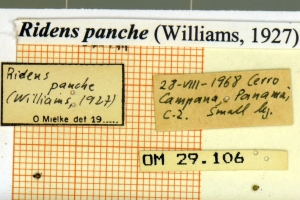 Ridens panche (Williams, 1927)
Ridens
panche
(Williams, 1927)
O Mielke det 19.....
23-VIII-1968 Cerro
Campana, Panama,
C-Z. Small lg.
OM 29.106